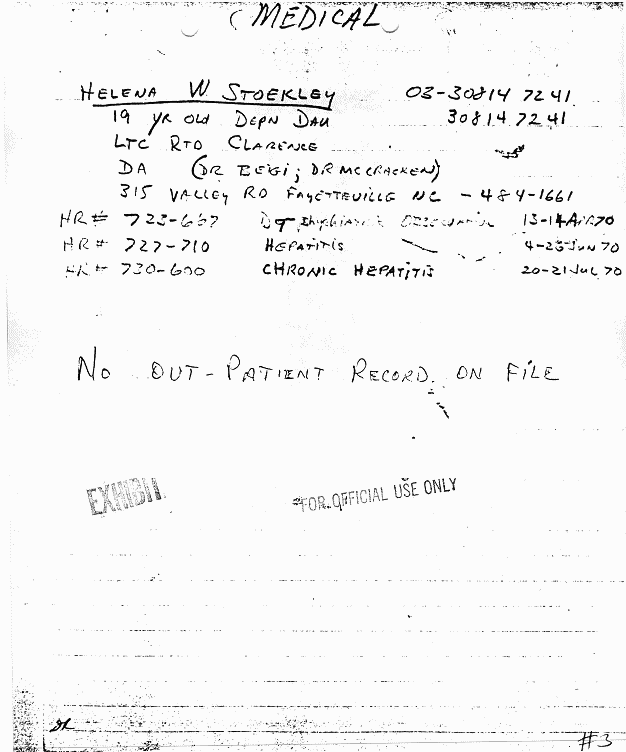 MEDICAL
HELENA W STOEKLEY 03-30814 7241
19 YR OLD DEPN DAU 30814 7241
LTC RTD CLARENCE
DA (DR BEGI; DR MCCRACKEN)
315 VALLEY RD FAYETTEVILLE NC - 484-1661
HR# 723-667 OBSERVATION 13-14 APR 70
HR# 727-710 HEPATITIS 4-23 JUN 70
HR# 730-600 CHRONIC HEPATITIS 20-21 JUL 70
NO OUT-PATIENT RECORD ON FILE
EXHIBIT
FOR OFFICIAL USE ONLY
#3